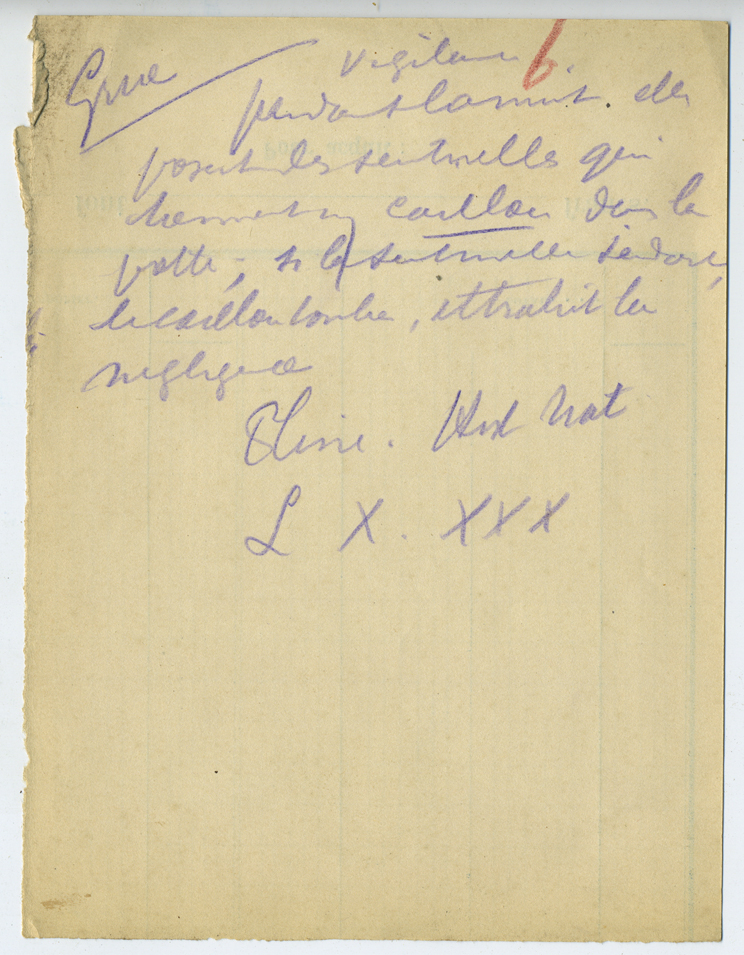 Grue Vigilance 6
pendant la nuit. elles
posent des sentinelles qui
tiennent un caillou dans la
patte ; si la sentinelle s'endort,
le caillou tombe, et trahit la
négligence
Pline. Hist Nat
L X. XXX